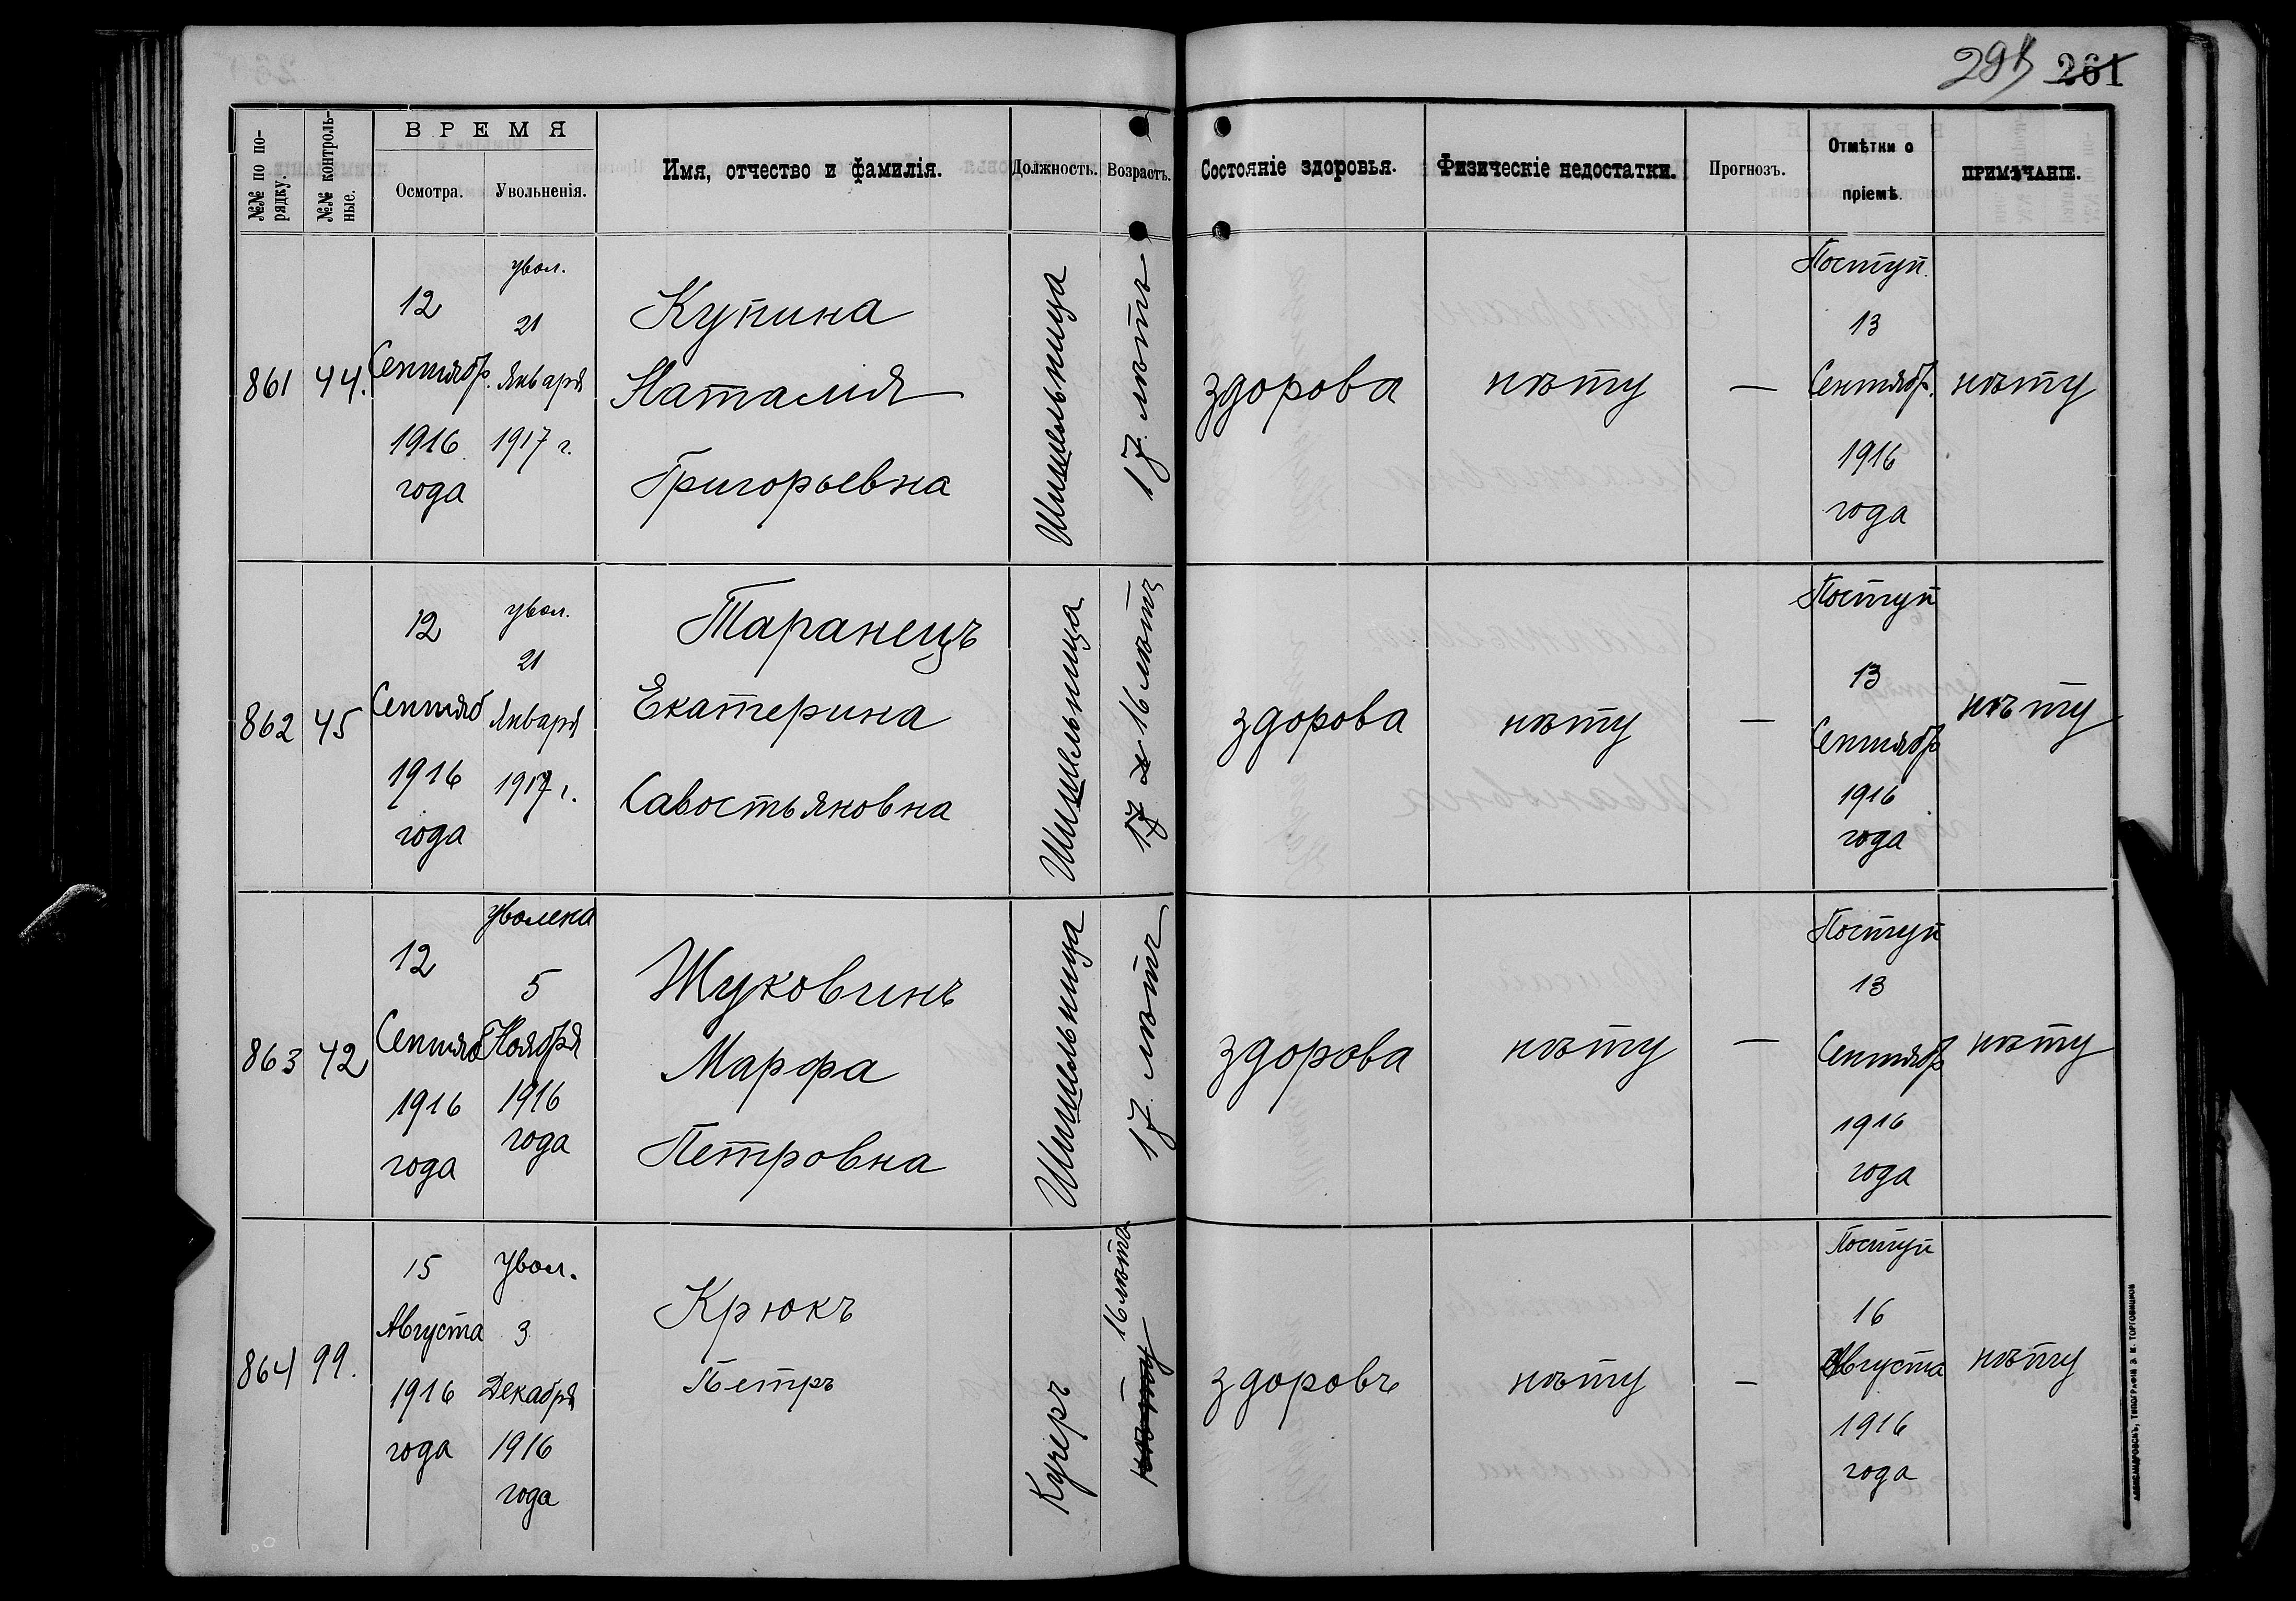 261
№№ по по-
рядку.
№№ контроль-
ные.
ВРЕМЯ
Осмотра.
Увольненія.
Имя, отчество и фамилія.
Должность.
Возрастъ.
Состояніе здоровья.
Физическіе недостатки.
Прогнозъ.
Отмѣтки о
пріемѣ.
ПРИМѢЧАНІЕ.
861
44.
12
Сентябр.
1916
года
увол.
21
Января
1917 г.
Купина
Наталия
Григорьевна
Шишельница
17 лѣтъ
здорова
нѣту
—
Поступ.
13
Сентябр.
1916
года
нѣту
862
45
12
Сентяб
1916
года
увол.
21
Января
1917 г.
Таранецъ
Екатерина
Савостьяновна
Шишельница
17 л 16 лѣтъ
здорова
нѣту
—
Поступ
13
Сентябр
1916
года
нѣту
863
42
12
Сентяб
1916
года
уволена
5
Ноября
1916
года
Жуковинъ
Марфа
Петровна
Шишельница
17 лѣтъ
здорова
нѣту
—
Поступ
13
Сентябр
1916
года
нѣту
864
99.
15
Августа
1916
года
Увол.
3
Декабря
1916
года
Крюкъ
Петръ
Кучеръ
нѣту
16 лѣтъ
здоровъ
нѣту
—
Поступ
16
Августа
1916
года
нѣту
АЛЕКСАНДРОВСКЪ, ТИПОГРАФІЯ Э. И. ТОРГОВИЦКОВ